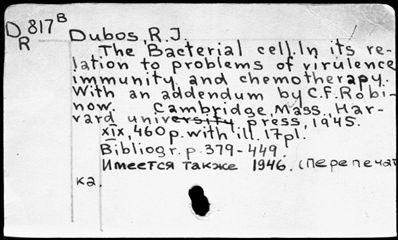 D 817 B
R
Dubos, R.J.
The Bacterial cell. In its re-
lation to problems of virulence
immunity and chemotherapy.
With an addendum by C.F. Robi-
now. Cambridge, Mass., Har-
vard university press, 1945.
XIX, 460 p. with ill. 17 pl.
Bibliogr. p. 379-449.
Имеется также 1946. (перепечат
ка.